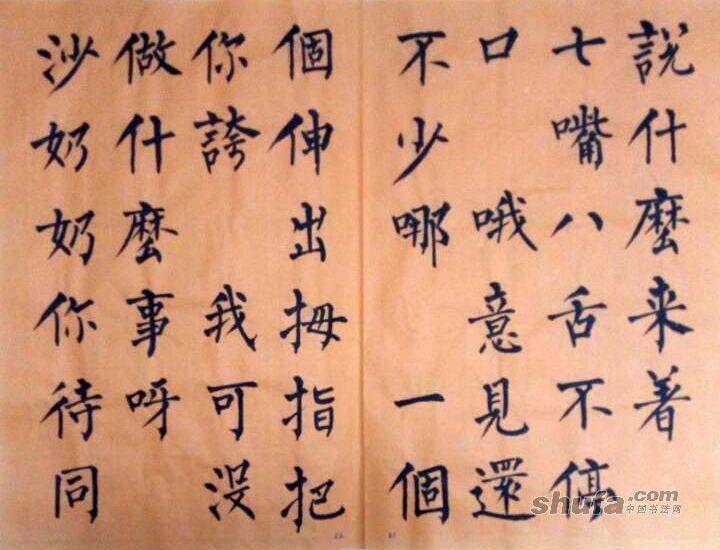 說什麼来著
七嘴八舌不停
口 哦意見還
不少哪 一個
個伸出拇指把
你誇 我可没
做什麼事呀
沙奶奶你待同
shufa.com
中国书法网